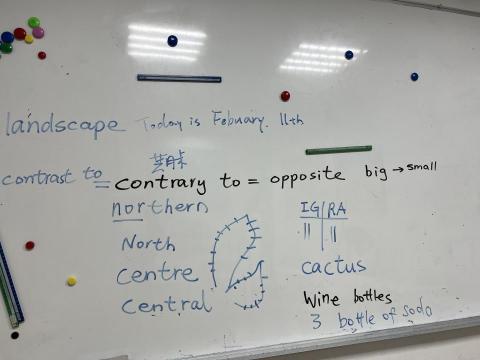 landscape Today is Febuary. 11th
contrast to = contrary to = opposite big → small
northern
North
centre
central
IG RA
|| ||
cactus
Wine bottles
3 bottle of sodo